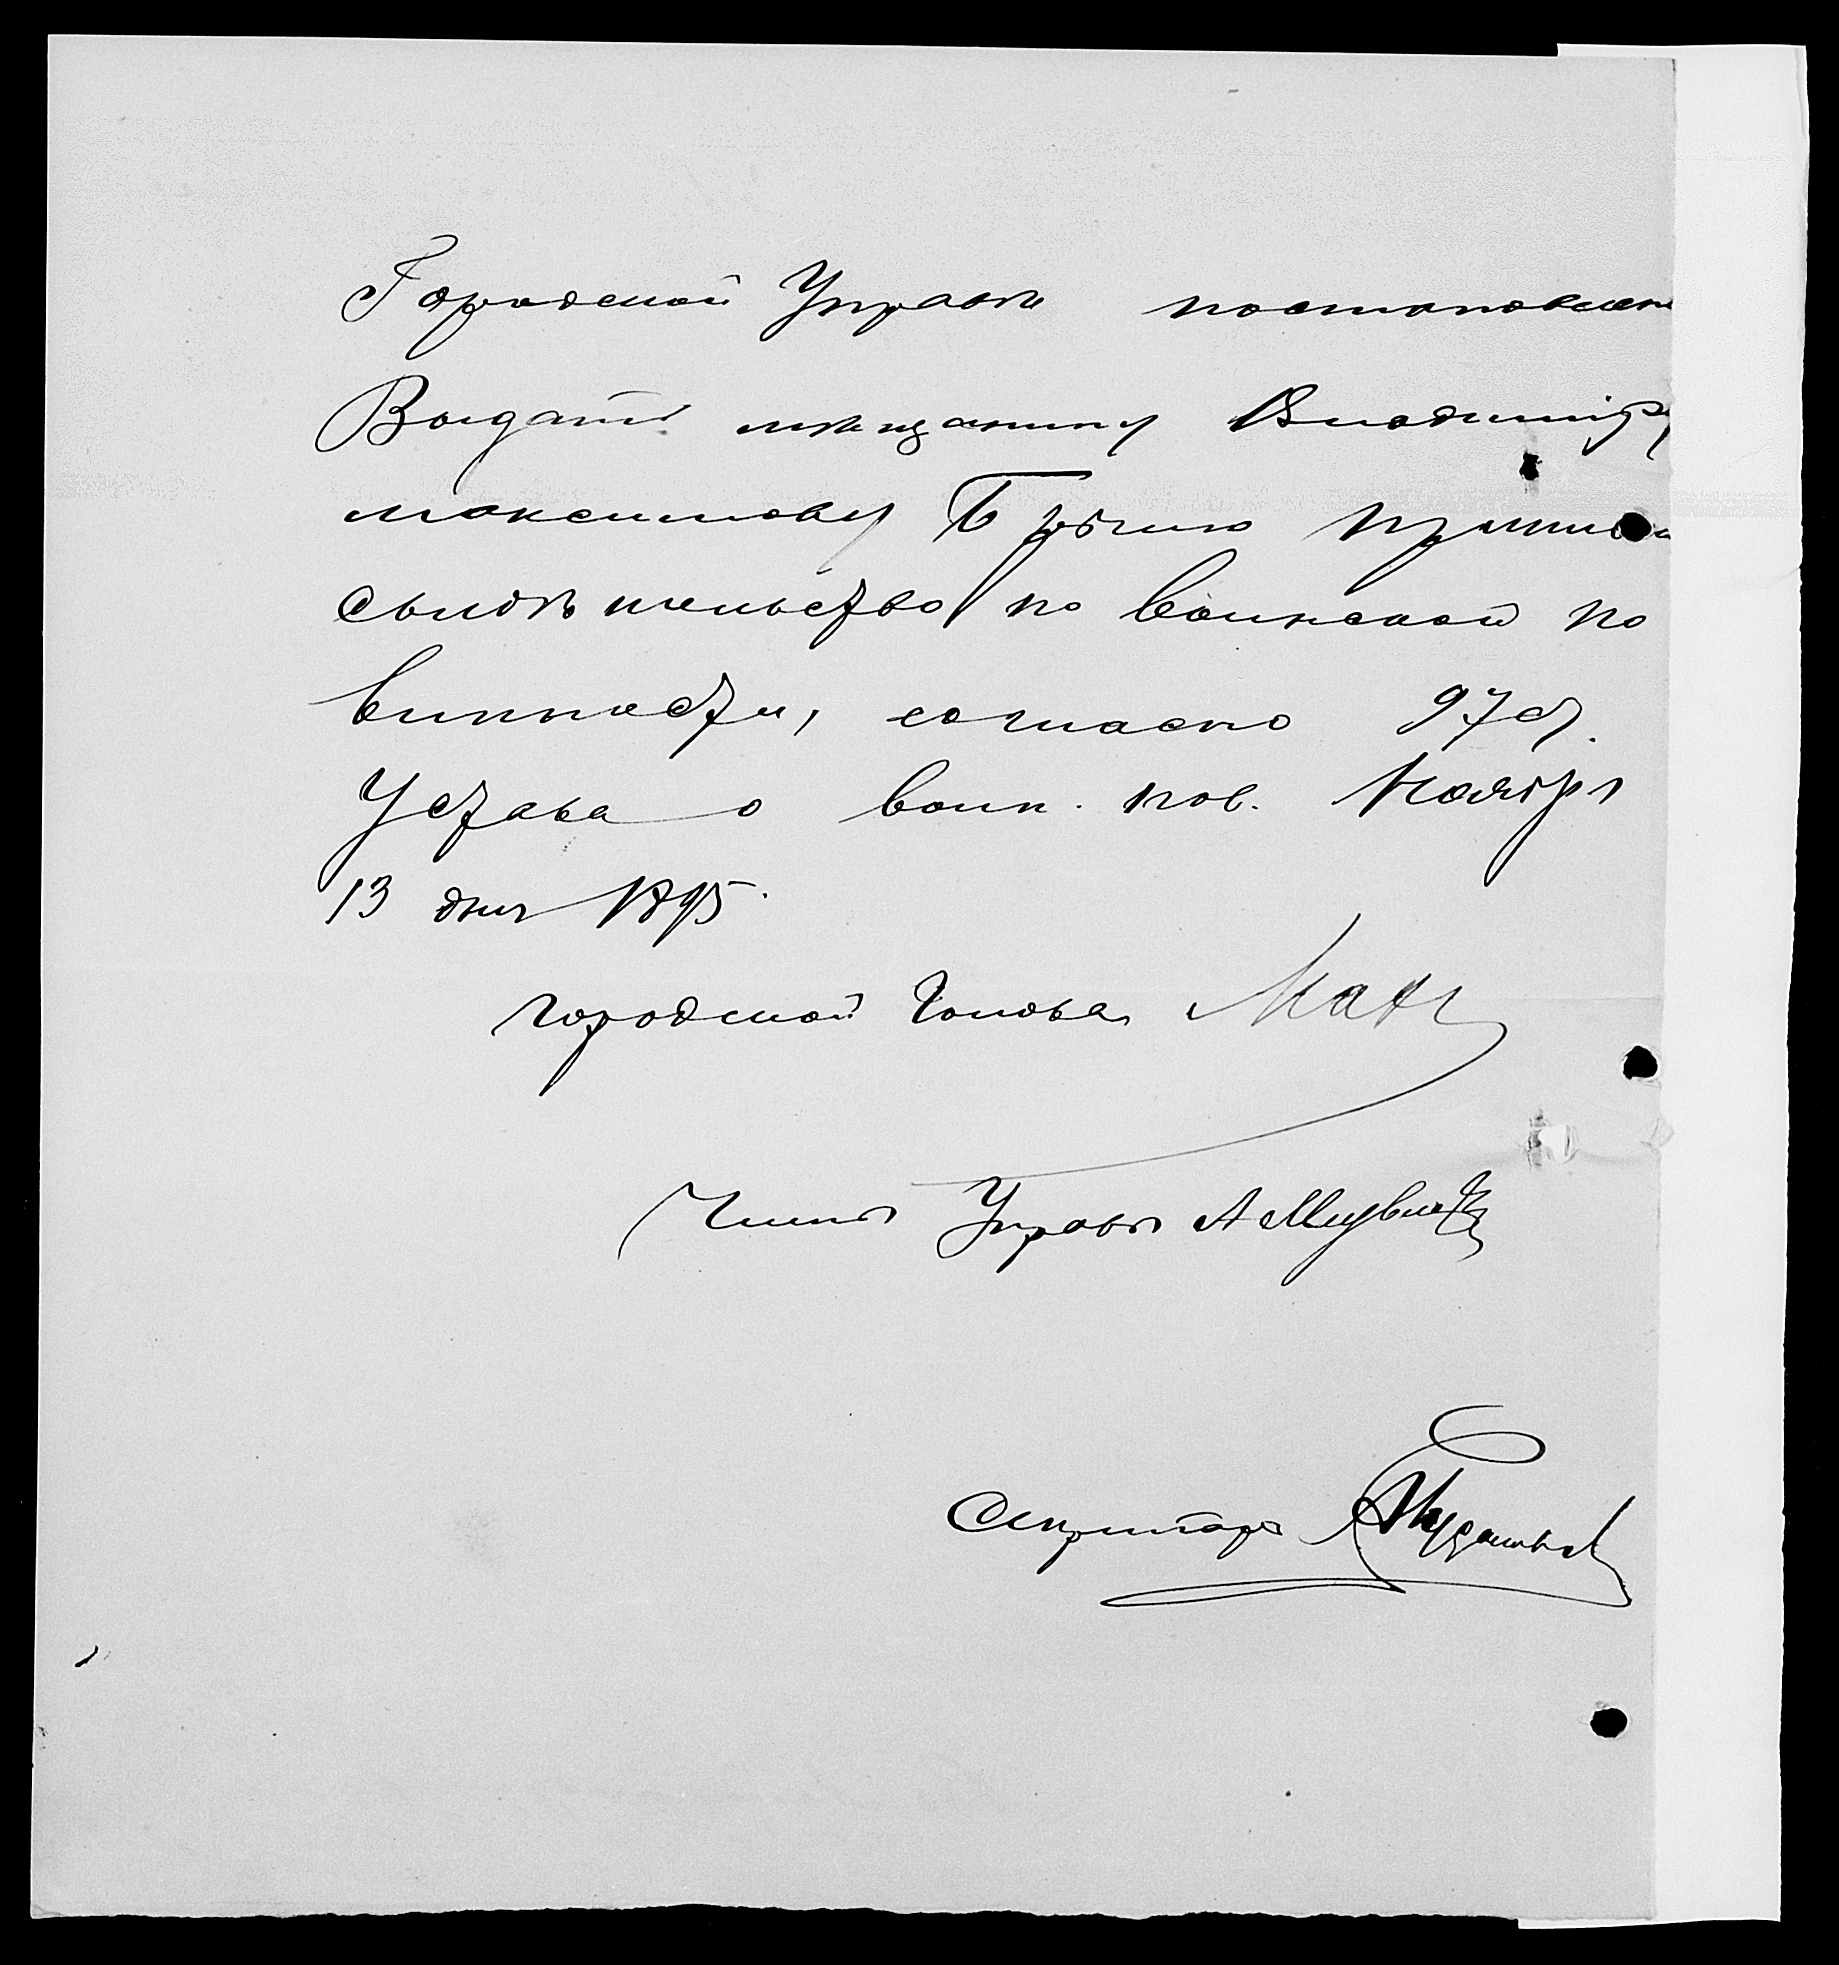 Городской Управѣ постановлен
Выдать мѣщанину Владиміру
Максимову приписн
свидѣтельство по воинской по
винности, согласно 97 ст.
Устава о воин. пов. Ноября
13 дня 1895.
Городской Голова
Членъ Управы А
Секретарь